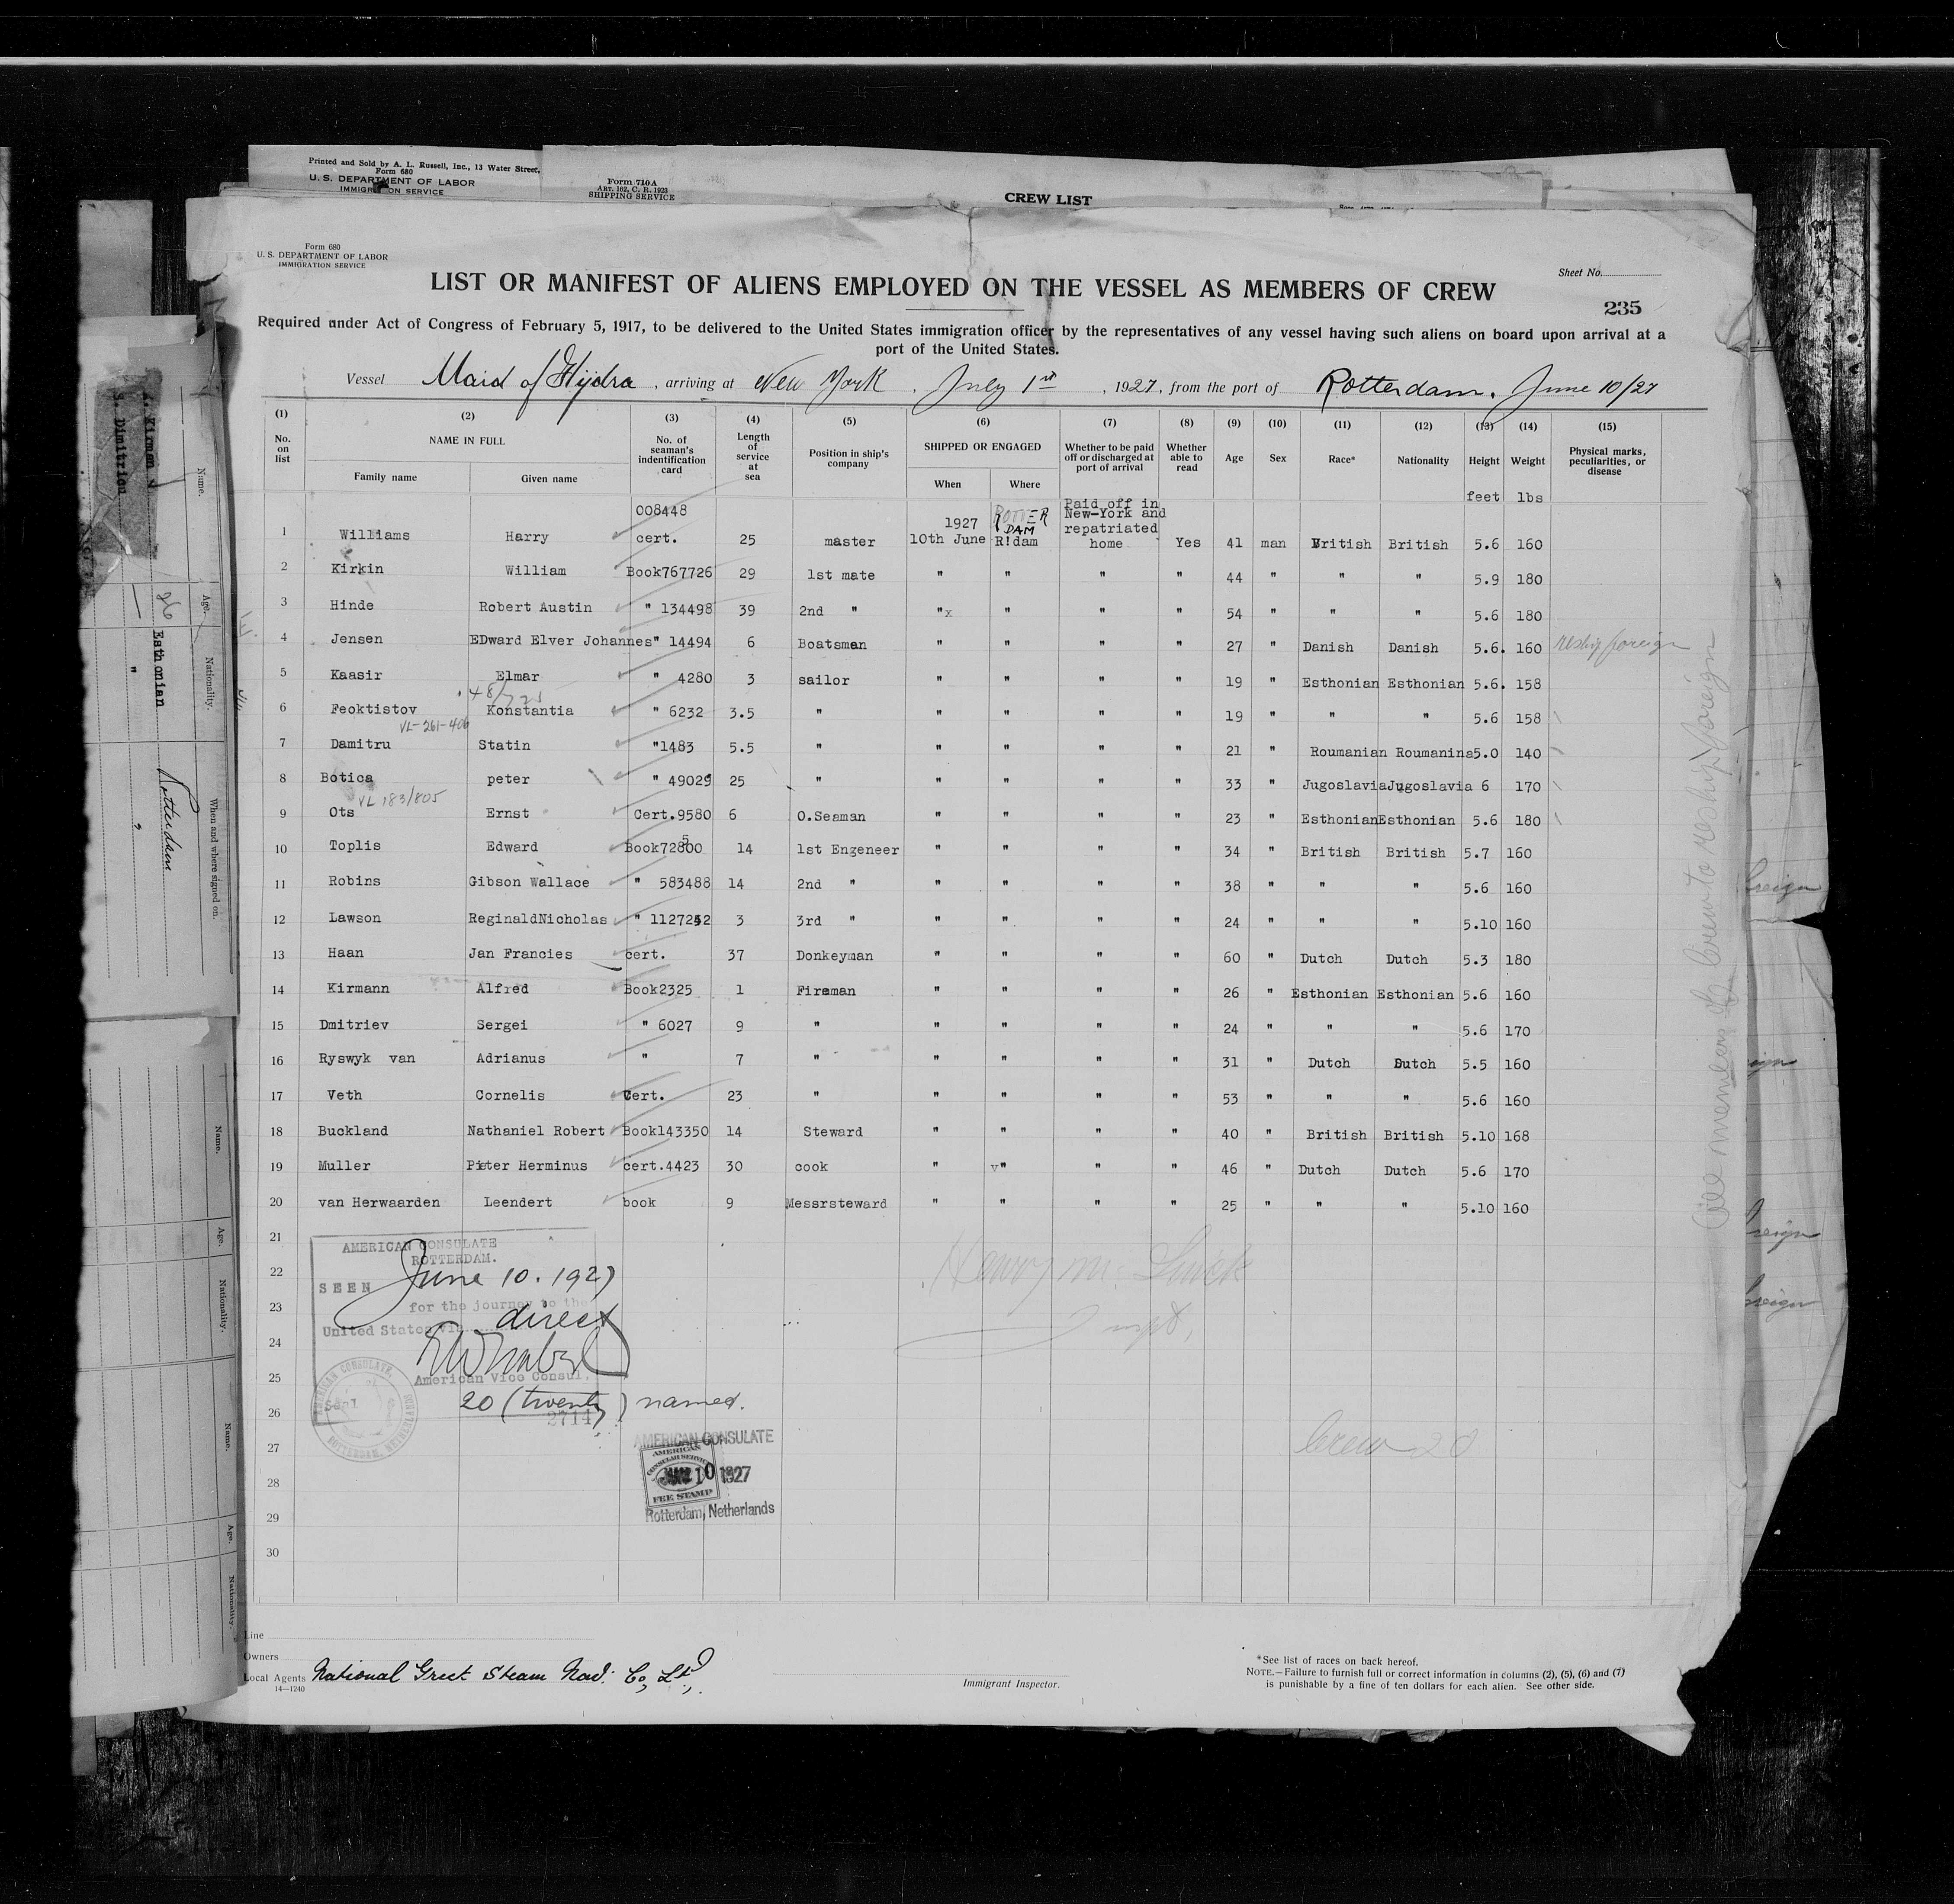 Printed and Sold by A. L. Russell, Inc., 13 Water Street,
Form 680
U. S. DEPARTMENT OF LABOR
IMMIGRATION SERVICE
Form 710A
ART. 162, C. R. 1923
SHIPPING SERVICE
CREW LIST
Form 680
U. S. DEPARTMENT OF LABOR
IMMIGRATION SERVICE
Sheet No.
LIST OR MANIFEST OF ALIENS EMPLOYED ON THE VESSEL AS MEMBERS OF CREW
235
Required under Act of Congress of February 5, 1917, to be delivered to the United States immigration officer by the representatives of any vessel having such aliens on board upon arrival at a
port of the United States.
Vessel Maid of Hydra, arriving at New York, July 1st, 1927, from the port of Rotterdam. June 10/27
(1) (2) (3) (4) (5) (6) (7) (8) (9) (10) (11) (12) (13) (14) (15)
No. on list NAME IN FULL Family name Given name No. of seaman's indentification card Length of service at sea Position in ship's company SHIPPED OR ENGAGED When Where Whether to be paid off or discharged at port of arrival Whether able to read Age Sex Race* Nationality Height Weight Physical marks, peculiarities, or disease
feet lbs
1 Williams Harry 008448 cert. 25 master 1927 10th June ROTTERDAM R!dam Paid off in New-York and repatriated home Yes 41 man British British 5.6 160
2 Kirkin William Book767726 29 1st mate " " " " 44 " " " 5.9 180
3 Hinde Robert Austin " 134498 39 2nd " "x " " " 54 " " " 5.6 180
4 Jensen EDward Elver Johannes " 14494 6 Boatsman " " " " 27 " Danish Danish 5.6. 160 reship foreign
5 Kaasir Elmar " 4280 3 sailor " " " " 19 " Esthonian Esthonian 5.6. 158
48/725
6 Feoktistov Konstantia " 6232 3.5 " " " " " 19 " " " 5.6 158
VL-261-406
7 Damitru Statin "1483 5.5 " " " " " 21 " Roumanian Roumanina 5.0 140
8 Botica peter " 49029 25 " " " " " 33 " Jugoslavia Jugoslavia 6 170
VL 183/805
9 Ots Ernst Cert.9580 6 O.Seaman " " " " 23 " Esthonian Esthonian 5.6 180
10 Toplis Edward Book72800 5 14 1st Engeneer " " " " 34 " British British 5.7 160
11 Robins Gibson Wallace " 583488 14 2nd " " " " " 38 " " " 5.6 160
12 Lawson ReginaldNicholas " 1127242 3 3rd " " " " " 24 " " " 5.10 160
13 Haan Jan Francies cert. 37 Donkeyman " " " " 60 " Dutch Dutch 5.3 180
14 Kirmann Alfred Book2325 1 Fireman " " " " 26 " Esthonian Esthonian 5.6 160
15 Dmitriev Sergei " 6027 9 " " " " " 24 " " " 5.6 170
16 Ryswyk van Adrianus " 7 " " " " " 31 " Dutch Dutch 5.5 160
17 Veth Cornelis Cert. 23 " " " " " 53 " " " 5.6 160
18 Buckland Nathaniel Robert Book143350 14 Steward " " " " 40 " British British 5.10 168
19 Muller Pieter Herminus cert.4423 30 cook " v" " " 46 " Dutch Dutch 5.6 170
20 van Herwaarden Leendert book 9 Messrsteward " " " " 25 " " " 5.10 160
21
22
23
24
25
26
27
28
29
30
AMERICAN CONSULATE
ROTTERDAM.
SEEN June 10. 1927
for the journey to the
United States via direct
American Vice Consul.
Seal
20 (twenty) named.
2714
AMERICAN CONSULATE
AMERICAN
CONSULAR SERVICE
JUN 10 1927
FEE STAMP
Rotterdam, Netherlands
Crew 20
All members of crew to reship foreign
Line
Owners
Local Agents National Greek Steam Nav: Co, Ltd,
14—1240
Immigrant Inspector.
*See list of races on back hereof.
NOTE.—Failure to furnish full or correct information in columns (2), (5), (6) and (7)
is punishable by a fine of ten dollars for each alien. See other side.
Name. Age. Nationality. When and where signed on.
Kirman 26 Esthonian Rotterdam
S. Dimitriou — " "
Name. Age. Nationality.
Name. Age. Nationality.